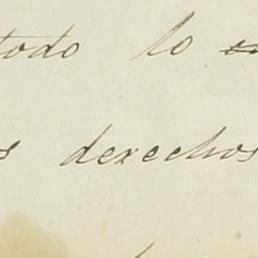 todo lo
derechos